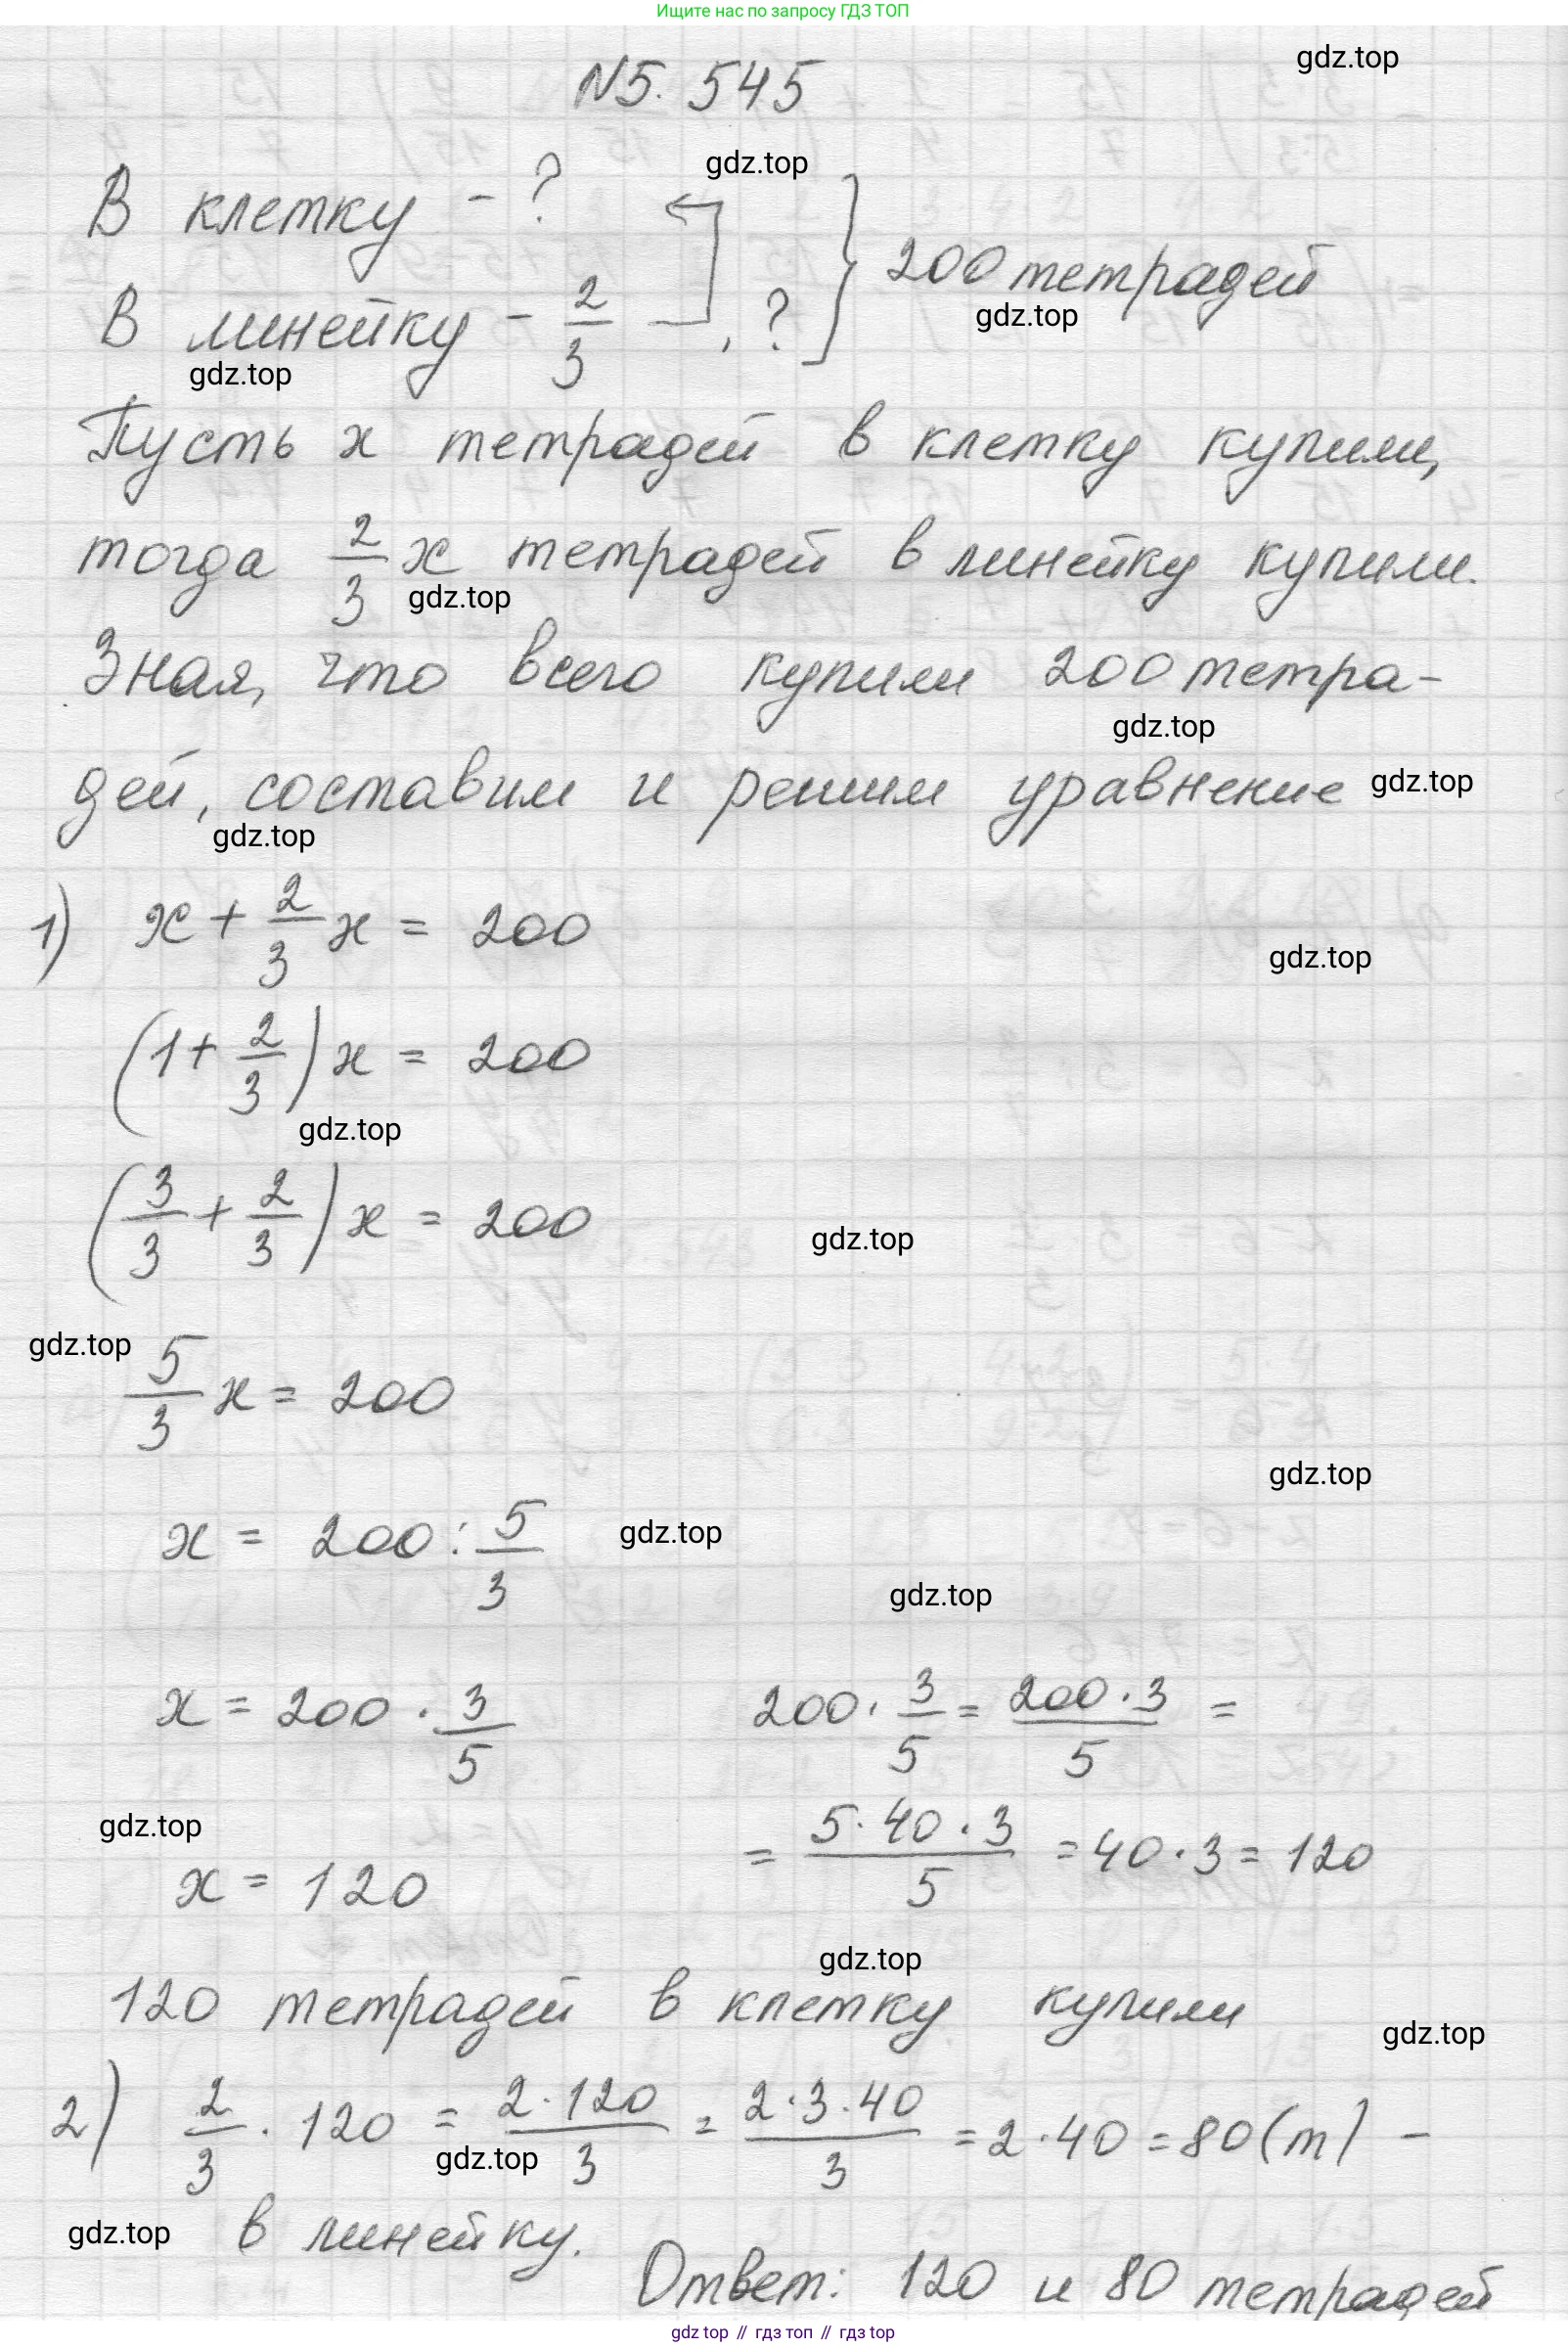 Ищите нас по запросу ГДЗ ТОП
gdz.top
N5. 545
gdz.top
В клетку - ?
В линейку - 2/3 , ? } 200 тетрадей
gdz.top
gdz.top
Пусть x тетрадей в клетку купили,
тогда 2/3 x тетрадей в линейку купили.
gdz.top
Зная, что всего купили 200 тетра-
gdz.top
дей, составим и решим уравнение gdz.top
gdz.top
1) x + 2/3 x = 200
gdz.top
(1 + 2/3) x = 200
gdz.top
(3/3 + 2/3) x = 200
gdz.top
gdz.top
5/3 x = 200
gdz.top
x = 200 : 5/3 gdz.top
gdz.top
x = 200 · 3/5
200 · 3/5 = 200 · 3/5 =
gdz.top
= 5 · 40 · 3/5 = 40 · 3 = 120
x = 120
gdz.top
120 тетрадей в клетку купили
gdz.top
2) 2/3 · 120 = 2 · 120/3 = 2 · 3 · 40/3 = 2 · 40 = 80 (т) -
gdz.top
gdz.top в линейку.
Ответ: 120 и 80 тетрадей
gdz top // гдз топ // гдз top